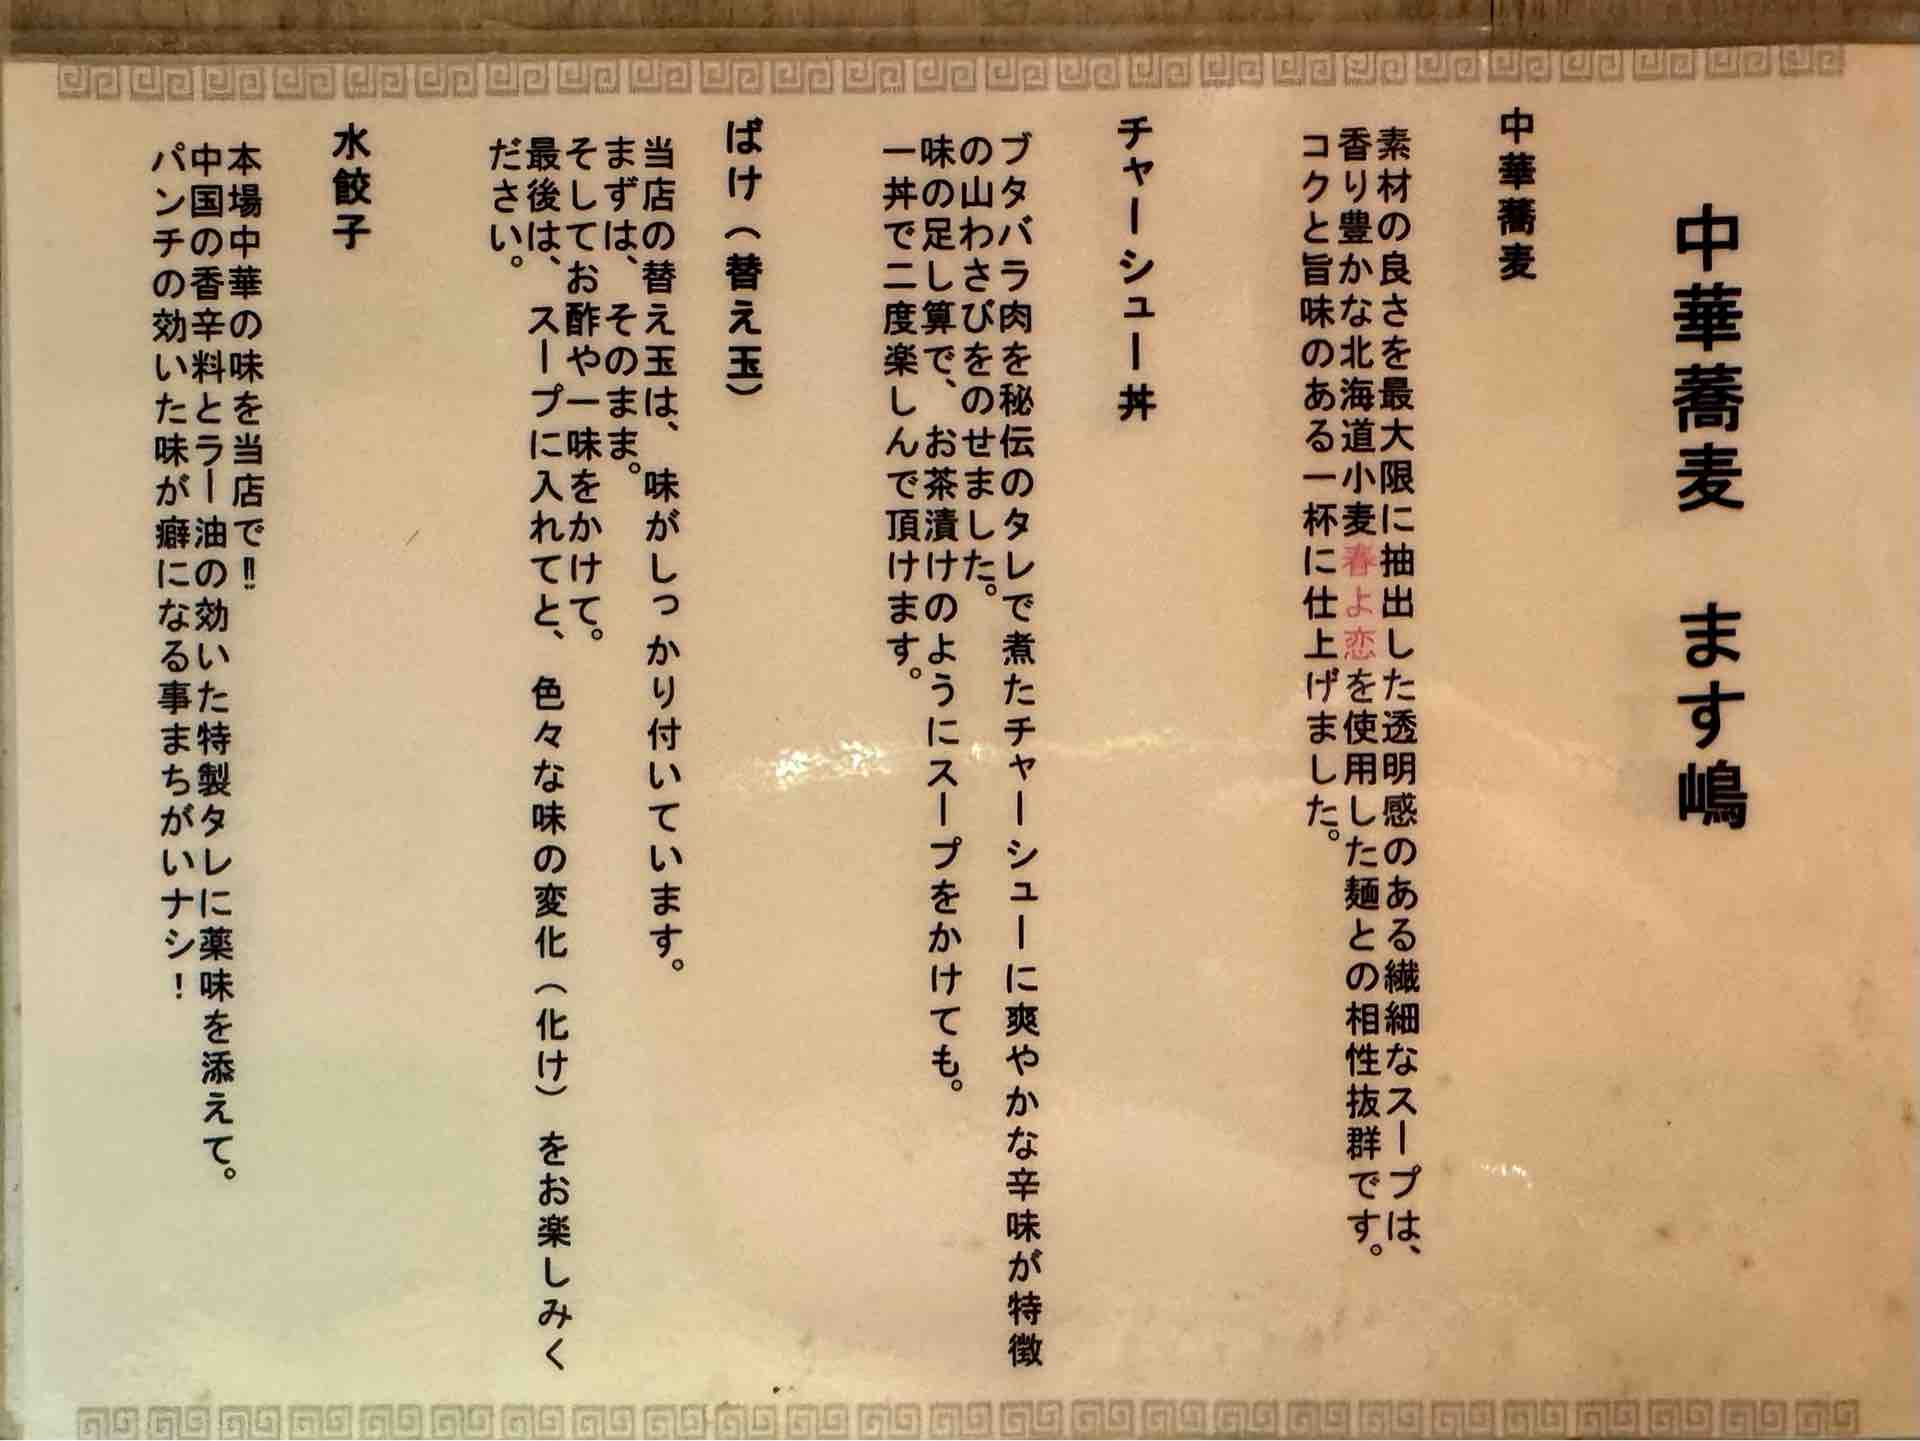 中華蕎麦　ます嶋
中華蕎麦
素材の良さを最大限に抽出した透明感のある繊細なスープは、
香り豊かな北海道小麦春よ恋を使用した麺との相性抜群です。
コクと旨味のある一杯に仕上げました。
チャーシュー丼
ブタバラ肉を秘伝のタレで煮たチャーシューに爽やかな辛味が特徴
の山わさびをのせました。
味の足し算で、お茶漬けのようにスープをかけても。
一丼で二度楽しんで頂けます。
ばけ（替え玉）
当店の替え玉は、味がしっかり付いています。
まずは、そのまま。
そしてお酢や一味をかけて。
最後は、スープに入れてと、色々な味の変化（化け）をお楽しみく
ださい。
水餃子
本場中華の味を当店で!!
中国の香辛料とラー油の効いた特製タレに薬味を添えて。
パンチの効いた味が癖になる事まちがいナシ！